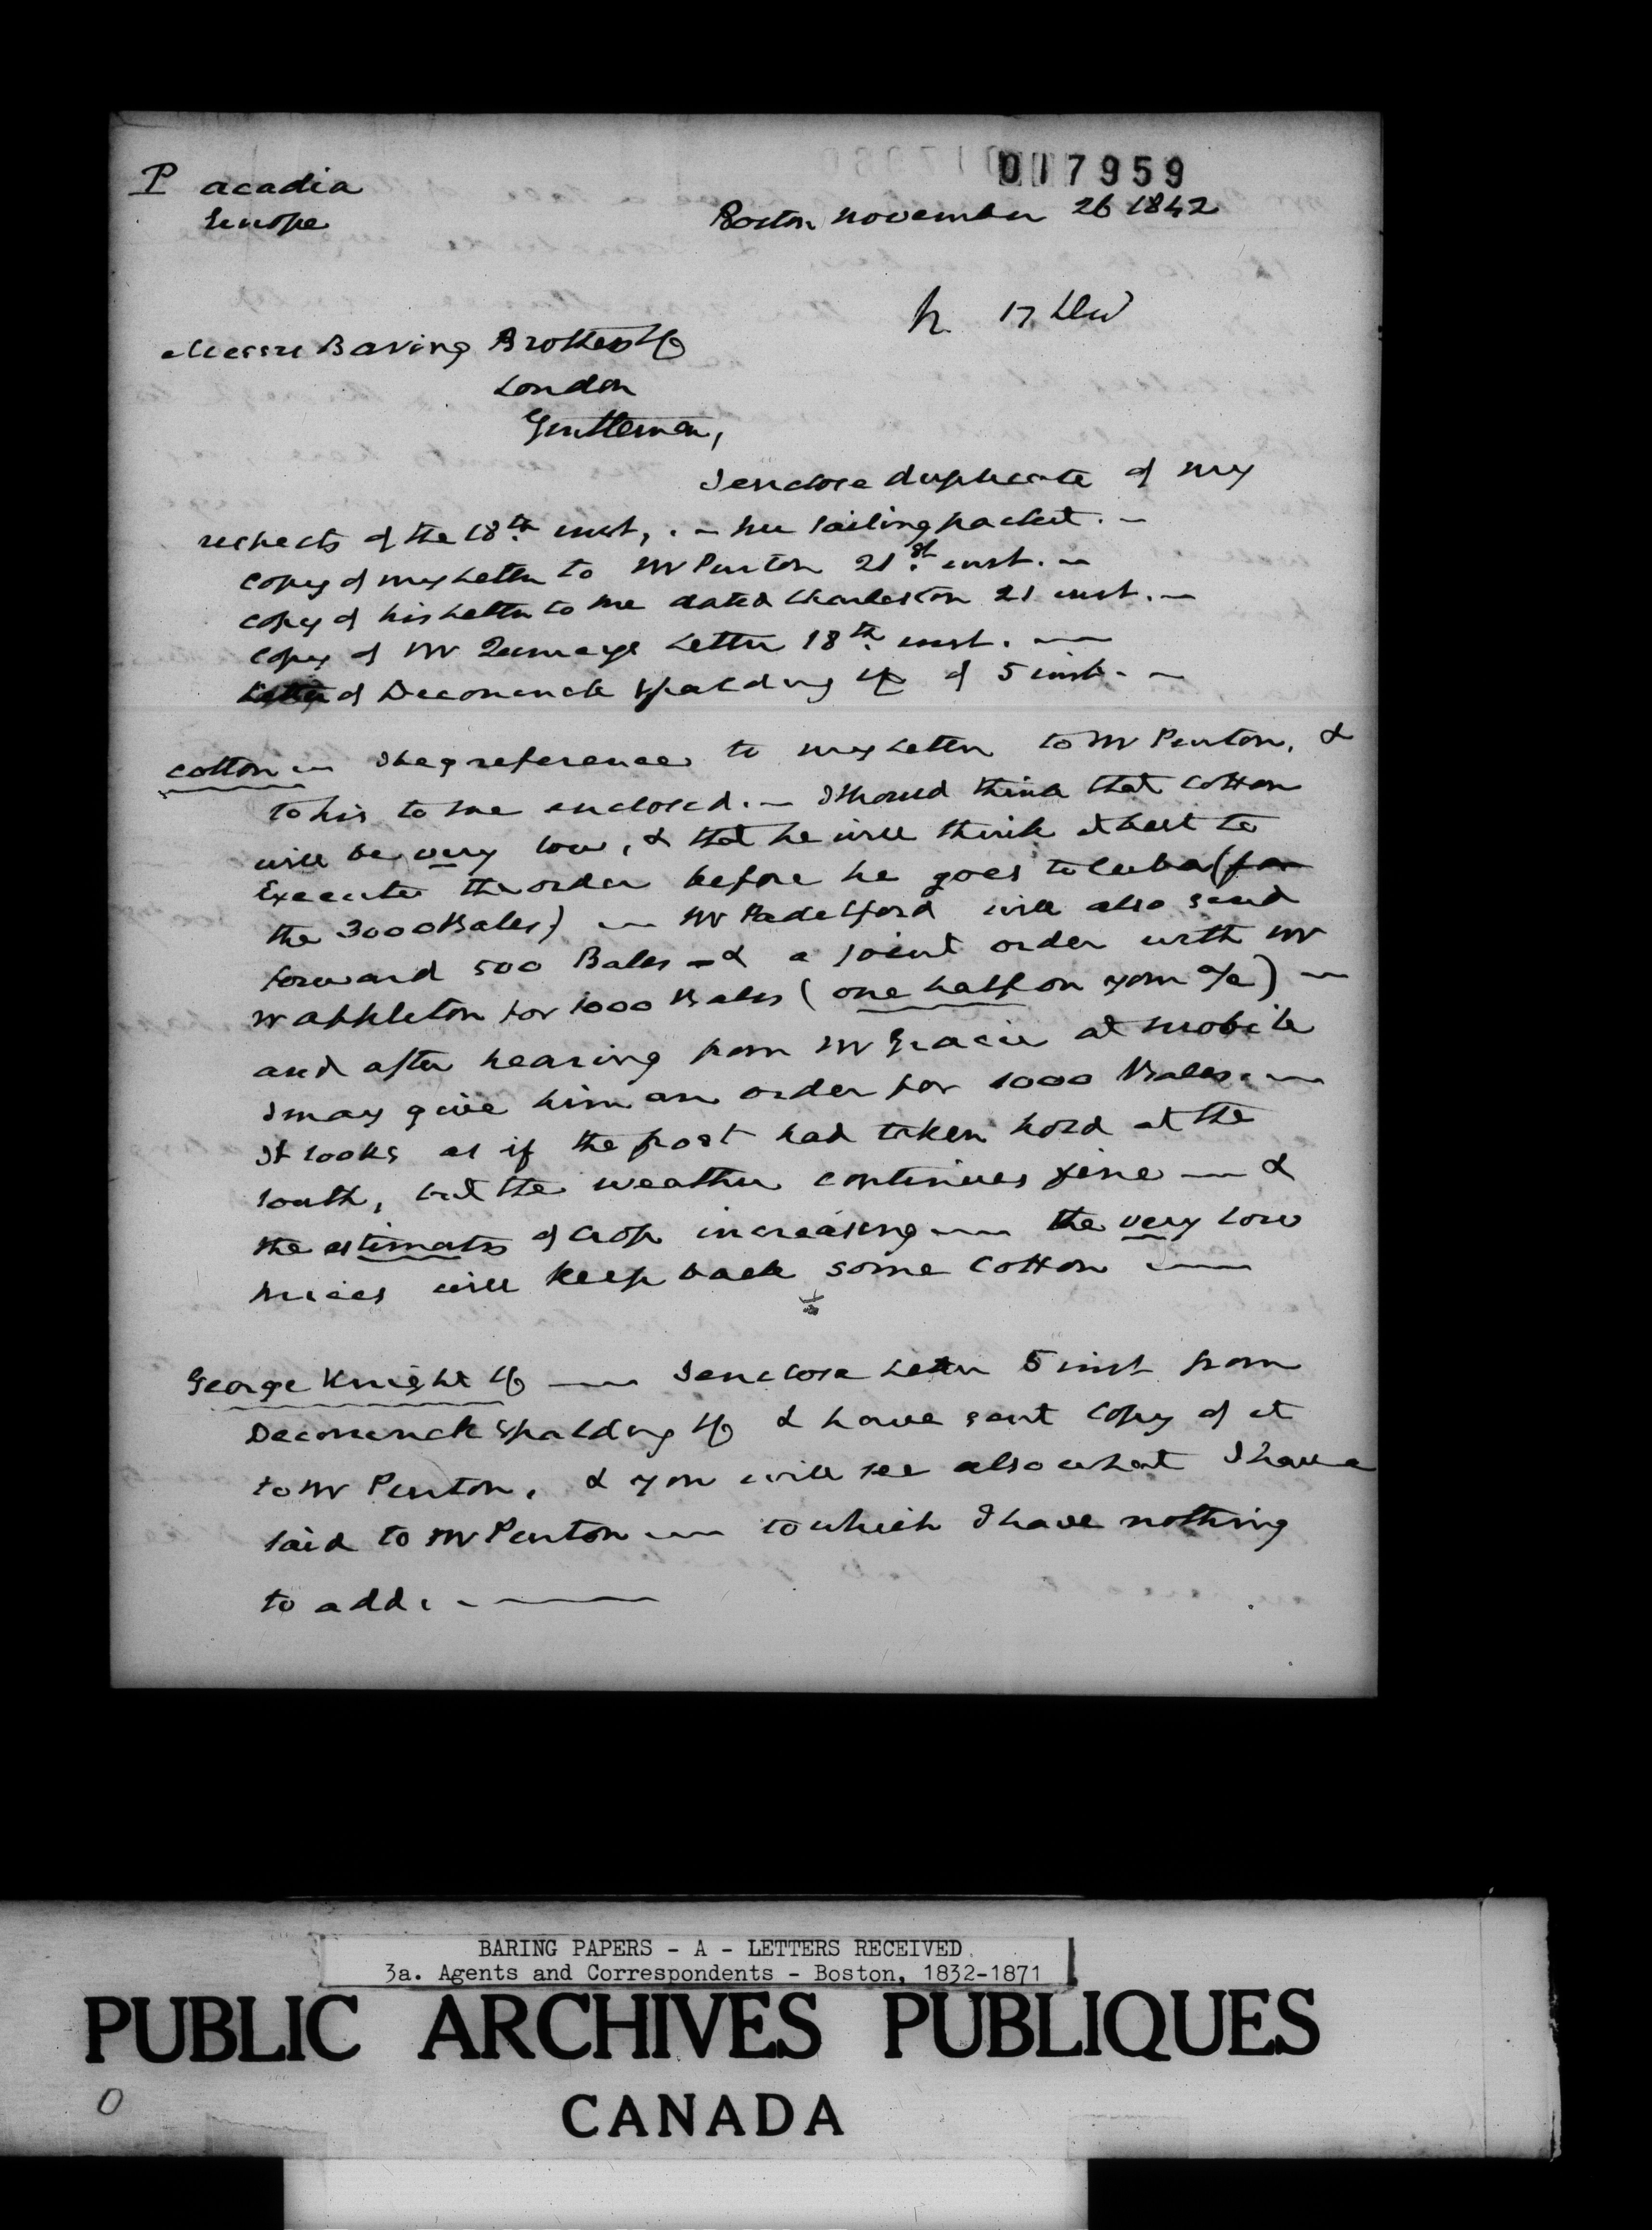 017959
P acadia
Europe
Boston november 26 1842
17 Dec
Messrs Baring Brothers & Co
London
Gentlemen,
I enclose duplicate of my
respects of the 18th inst, . — per sailing packet. —
copy of my Letter to Mr Purton 21st inst. —
copy of his Letter to me dated Charleston 21 inst. —
copy of Mr Letter 18th inst. —
Letter of Deconinck Spalding & Co of 5 inst. —
cotton — I beg reference to my Letter to Mr Purton, &
to his to me enclosed. — I should think that cotton
will be very low, & that he will think it best to
Execute the order before he goes to Cuba (for
the 3000 Bales) — Mr Padelford will also send
forward 500 Bales — & a joint order with Mr
W appleton for 1000 Bales (one half on your a/c) —
and after hearing from Mr Gracie at mobile
I may give him an order for 1000 Bales. —
It looks as if the frost had taken hold at the
South, but the weather continues fine — &
the estimates of crop increasing — the very low
prices will keep back some cotton —
George Knight & Co — I enclose Letter 5 inst from
Deconinck Spalding & Co & have sent copy of it
to Mr Purton, & you will see also what I have
said to Mr Purton — to which I have nothing
to add. —
BARING PAPERS - A - LETTERS RECEIVED.
3a. Agents and Correspondents - Boston, 1832-1871
PUBLIC ARCHIVES PUBLIQUES
CANADA
0